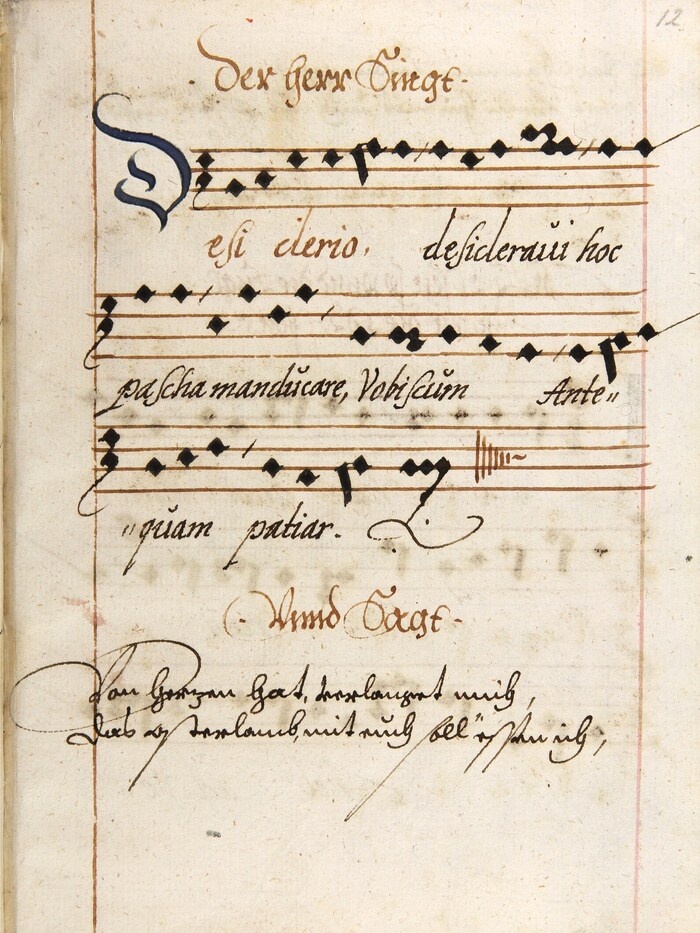 12
Der herr Singt.
Desiderio, desideraui hoc
pascha manducare, Vobiscum Ante„
„quam patiar.
Vnnd Sagt.
Von herzen hat, verlanget mich,
das osterlamb, mit euch soll essen ich,